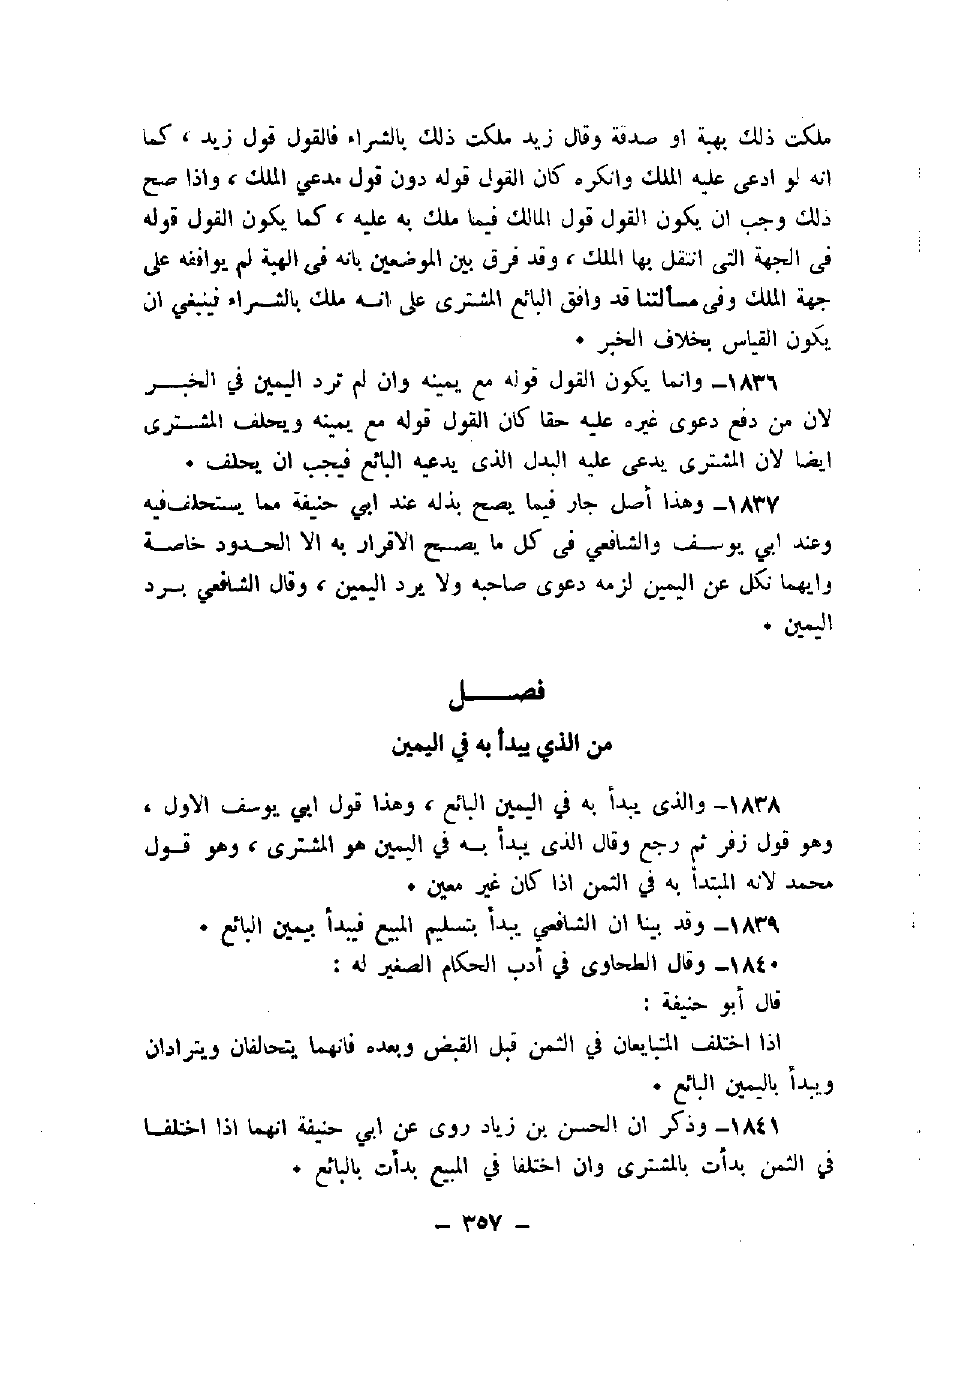 ملكت ذلك بهبة او صدقة وقال زيد ملكت ذلك بالشراء فالقول قول زيد ، كما
انه لو ادعى عليه الملك وانكره كان القول قوله دون قول مدعي الملك ، واذا صح
ذلك وجب ان يكون القول قول المالك فيما ملك به عليه ، كما يكون القول قوله
فى الجهة التى انتقل بها الملك ، وقد فرق بين الموضعين بانه فى الهبة لم يوافقه على
جهة الملك وفى مسألتنا قد وافق البائع المشترى على انـه ملك بالشـراء فينبغي ان
يكون القياس بخلاف الخبر •
١٨٣٦ــ وانما يكون القول قوله مع يمينه وان لم ترد اليمين في الخبـــر
لان من دفع دعوى غيره عليه حقا كان القول قوله مع يمينه ويحلف المشـترى
ايضا لان المشترى يدعى عليه البدل الذى يدعيه البائع فيجب ان يحلف •
١٨٣٧ــ وهذا أصل جار فيما يصح بذله عند ابي حنيفة مما يستحلف فيه
وعند ابي يوسـف والشافعي فى كل ما يصـح الاقرار به الا الحـدود خاصـة
وايهما نكل عن اليمين لزمه دعوى صاحبه ولا يرد اليمين ، وقال الشافعي يـرد
اليمين •
فصـــــل
من الذي يبدأ به في اليمين
١٨٣٨ــ والذى يبدأ به في اليمين البائع ، وهذا قول ابي يوسف الاول ،
وهو قول زفر ثم رجع وقال الذى يبدأ بـه في اليمين هو المشترى ، وهو قـول
محمد لانه المبتدأ به في الثمن اذا كان غير معين •
١٨٣٩ــ وقد بينا ان الشافعي يبدأ بتسليم المبيع فيبدأ بيمين البائع •
١٨٤٠ــ وقال الطحاوى في أدب الحكام الصغير له :
قال أبو حنيفة :
اذا اختلف المتبايعان في الثمن قبل القبض وبعده فانهما يتحالفان ويترادان
ويبدأ باليمين البائع •
١٨٤١ــ وذكر ان الحسن بن زياد روى عن ابي حنيفة انهما اذا اختلفـا
في الثمن بدأت بالمشترى وان اختلفا في المبيع بدأت بالبائع •
– ٣٥٧ –